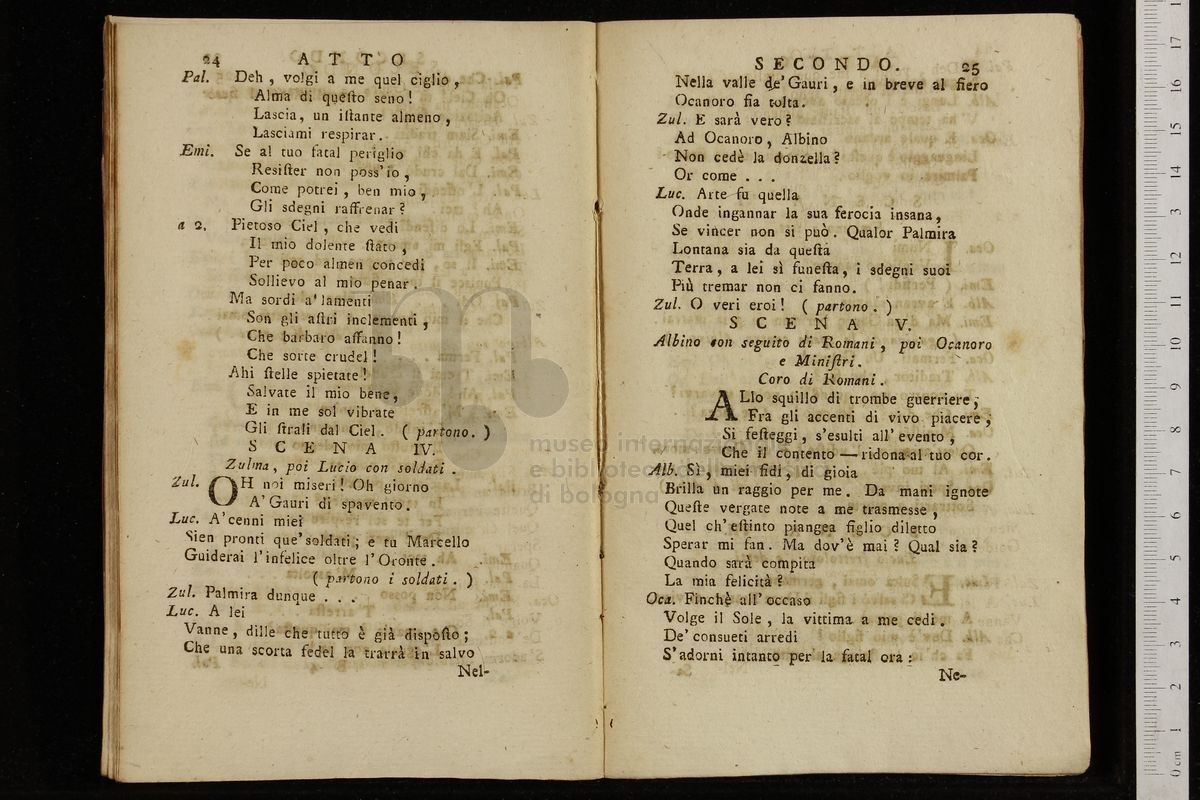 24 ATTO
Pal. Deh, volgi a me quel ciglio,
Alma di queſto seno!
Lascia, un iſtante almeno,
Lasciami respirar.
Emi. Se al tuo fatal periglio
Resiſter non poss'io,
Come potrei, ben mio,
Gli sdegni raffrenar?
a 2. Pietoso Ciel, che vedi
Il mio dolente ſtato,
Per poco almen concedi
Sollievo al mio penar.
Ma sordi a' lamenti
Son gli aſtri inclementi,
Che barbaro affanno!
Che sorte crudel!
Ahi ſtelle spietate!
Salvate il mio bene,
E in me sol vibrate
Gli ſtrali dal Ciel. (partono.)
SCENA IV.
Zulma, poi Lucio con soldati.
Zul. OH noi miseri! Oh giorno
A' Gauri di spavento.
Luc. A' cenni miei
Sien pronti que' soldati; e tu Marcello
Guiderai l'infelice oltre l'Oronte.
(partono i soldati.)
Zul. Palmira dunque . . .
Luc. A lei
Vanne, dille che tutto è già dispoſto;
Che una scorta fedel la trarrà in salvo
Nel-
SECONDO. 25
Nella valle de' Gauri, e in breve al fiero
Ocanoro fia tolta.
Zul. E sarà vero?
Ad Ocanoro, Albino
Non cedè la donzella?
Or come . . .
Luc. Arte fu quella
Onde ingannar la sua ferocia insana,
Se vincer non si può. Qualor Palmira
Lontana sia da queſta
Terra, a lei sì funeſta, i sdegni suoi
Più tremar non ci fanno.
Zul. O veri eroi! (partono.)
SCENA V.
Albino con seguito di Romani, poi Ocanoro
e Miniſtri.
Coro di Romani.
ALlo squillo di trombe guerriere,
Fra gli accenti di vivo piacere,
Si feſteggi, s'esulti all' evento,
Che il contento — ridona al tuo cor.
Alb. Sì, miei fidi, di gioia
Brilla un raggio per me. Da mani ignote
Queſte vergate note a me trasmesse,
Quel ch' eſtinto piangea figlio diletto
Sperar mi fan. Ma dov'è mai? Qual sia?
Quando sarà compita
La mia felicità?
Oca. Finchè all' occaso
Volge il Sole, la vittima a me cedi.
De' consueti arredi
S'adorni intanto per la fatal ora:
Ne-
museo internazionale
e biblioteca della musica
di bologna
0 cm 1 2 3 4 5 6 7 8 9 10 11 12 13 14 15 16 17